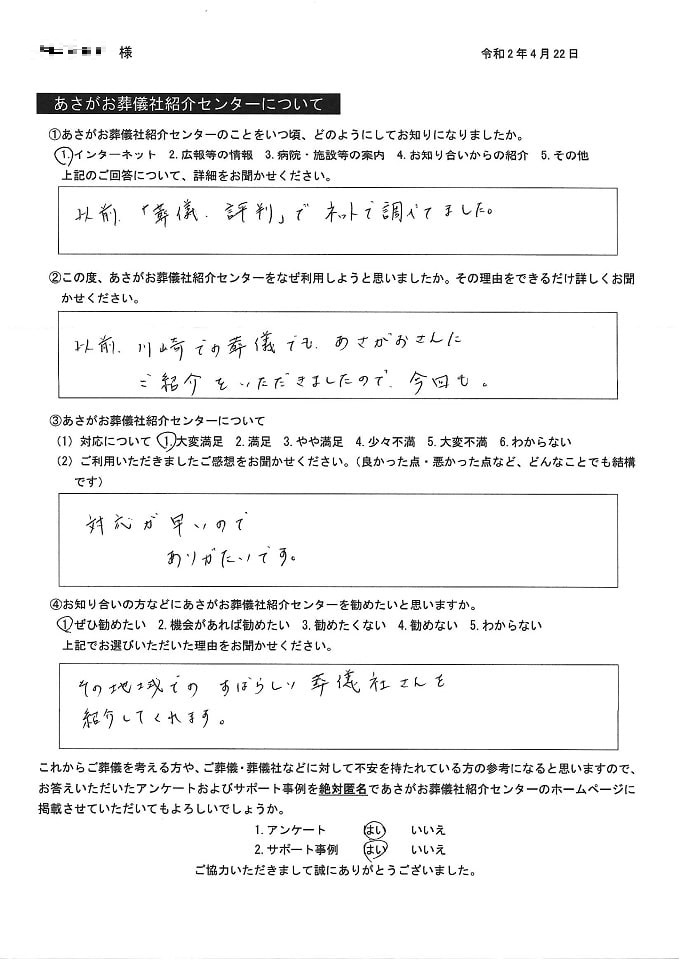 様
令和2年4月22日
あさがお葬儀社紹介センターについて
①あさがお葬儀社紹介センターのことをいつ頃、どのようにしてお知りになりましたか。
1.インターネット 2.広報等の情報 3.病院・施設等の案内 4.お知り合いからの紹介 5.その他
上記のご回答について、詳細をお聞かせください。
以前、「葬儀、評判」でネットで調べてました。
②この度、あさがお葬儀社紹介センターをなぜ利用しようと思いましたか。その理由をできるだけ詳しくお聞
かせください。
以前、川崎での葬儀でも、あさがおさんに
ご紹介をいただきましたので、今回も。
③あさがお葬儀社紹介センターについて
(1) 対応について 1.大変満足 2.満足 3.やや満足 4.少々不満 5.大変不満 6.わからない
(2) ご利用いただきましたご感想をお聞かせください。(良かった点・悪かった点など、どんなことでも結構
です)
対応が早いので
ありがたいです。
④お知り合いの方などにあさがお葬儀社紹介センターを勧めたいと思いますか。
1.ぜひ勧めたい 2.機会があれば勧めたい 3.勧めたくない 4.勧めない 5.わからない
上記でお選びいただいた理由をお聞かせください。
その地域でのすばらしい葬儀社さんを
紹介してくれます。
これからご葬儀を考える方や、ご葬儀・葬儀社などに対して不安を持たれている方の参考になると思いますので、
お答えいただいたアンケートおよびサポート事例を絶対匿名であさがお葬儀社紹介センターのホームページに
掲載させていただいてもよろしいでしょうか。
1.アンケート はい いいえ
2.サポート事例 はい いいえ
ご協力いただきまして誠にありがとうございました。